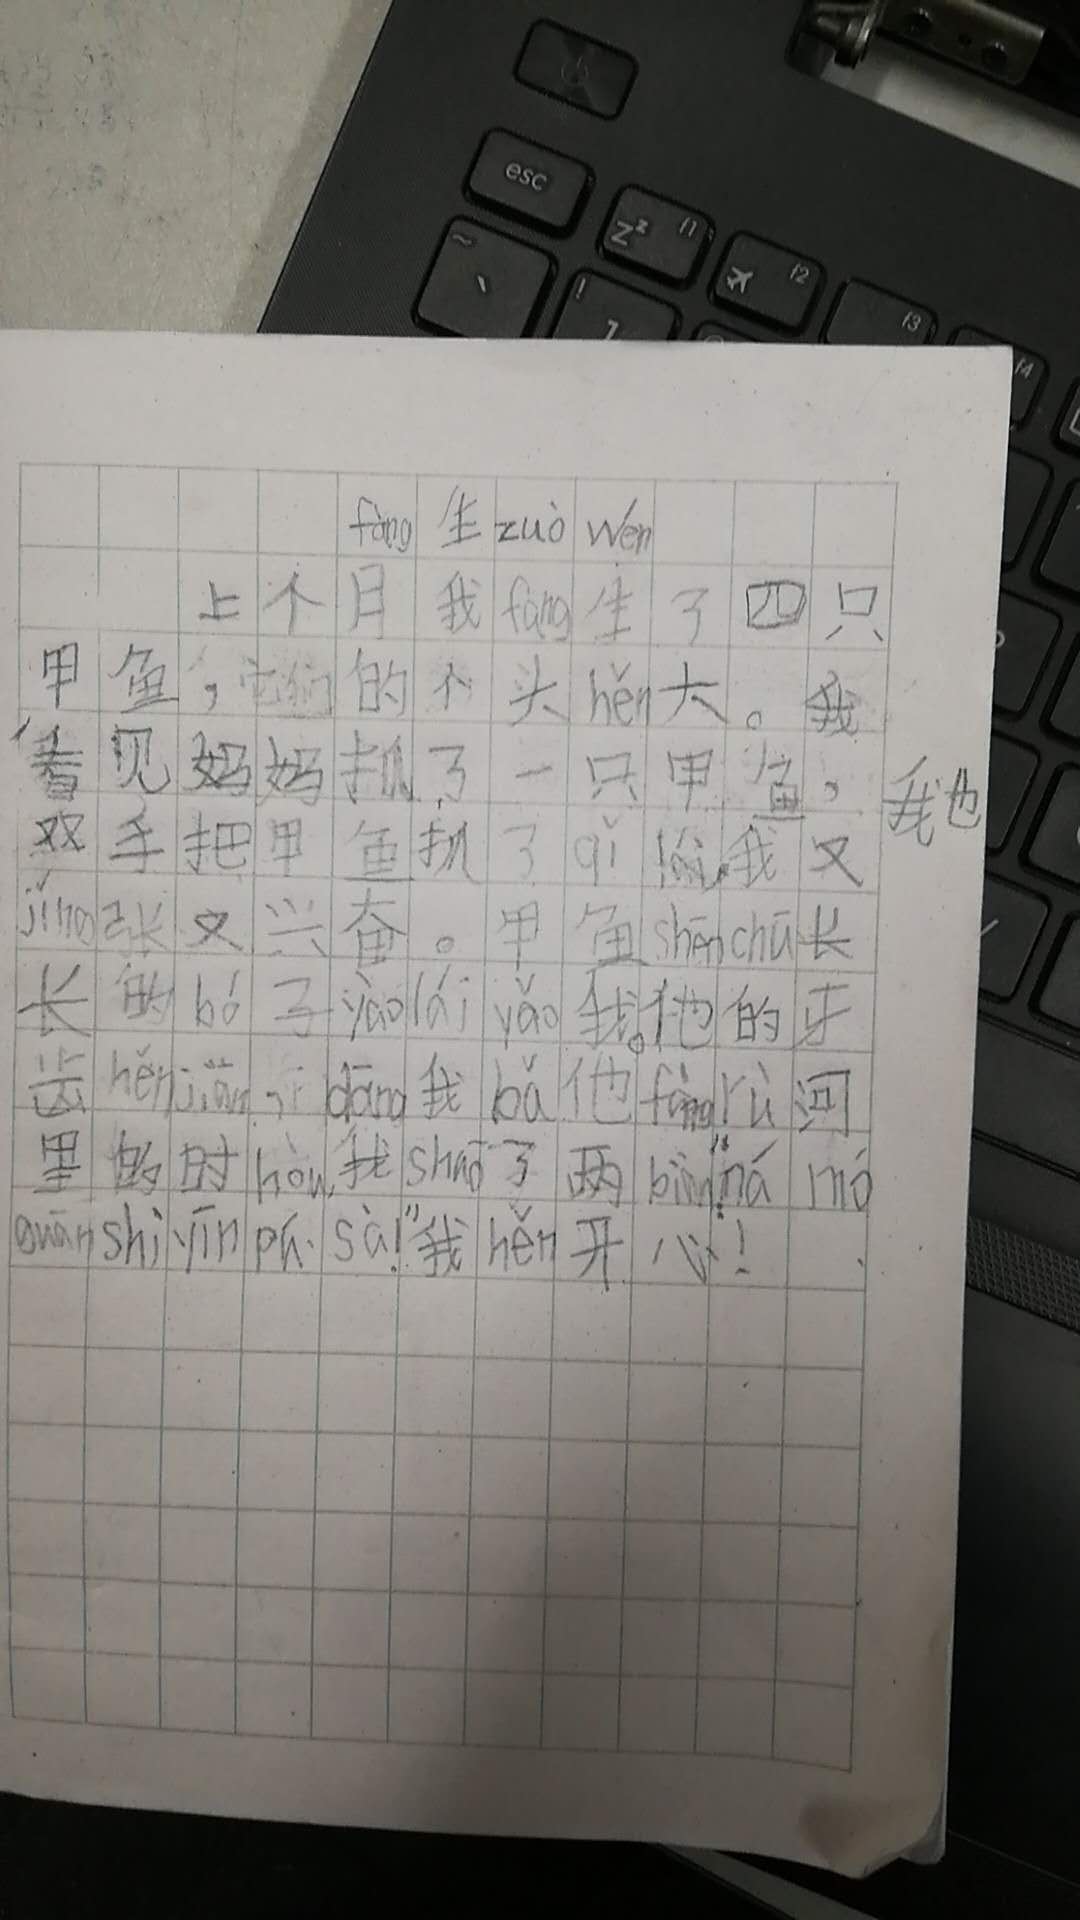 esc
Zz f1
f2
~ ` ! 1 f3
f4
fàng 生 zuò wén
上个月我 fàng 生了四只
甲鱼，它们的个头 hěn 大。我
看见妈妈抓了一只甲鱼，我也
双手把甲鱼抓了 qǐ 我又
jǐng 张又兴奋。甲鱼 shēn chū 长
长的 bó 子 yào lái yǎo 我。他的牙
齿 hěn jiān，dāng 我 bǎ 他 fàng rù 河
里的时 hòu，我 shuō 了两 biàn "ná mó
guān shì yīn pú sà!"我 hěn 开心！